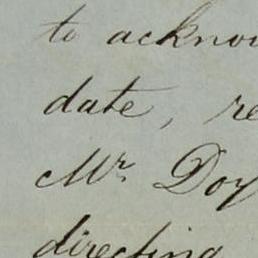 to acknow
date, re
Mr. Doy
directing